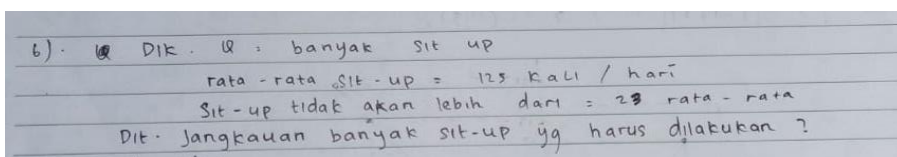 6). DIK. Q : banyak sit up
rata - rata sit - up = 125 kali / hari
Sit - up tidak akan lebih dari = 23 rata - rata
Dit. Jangkauan banyak sit-up yg harus dilakukan ?